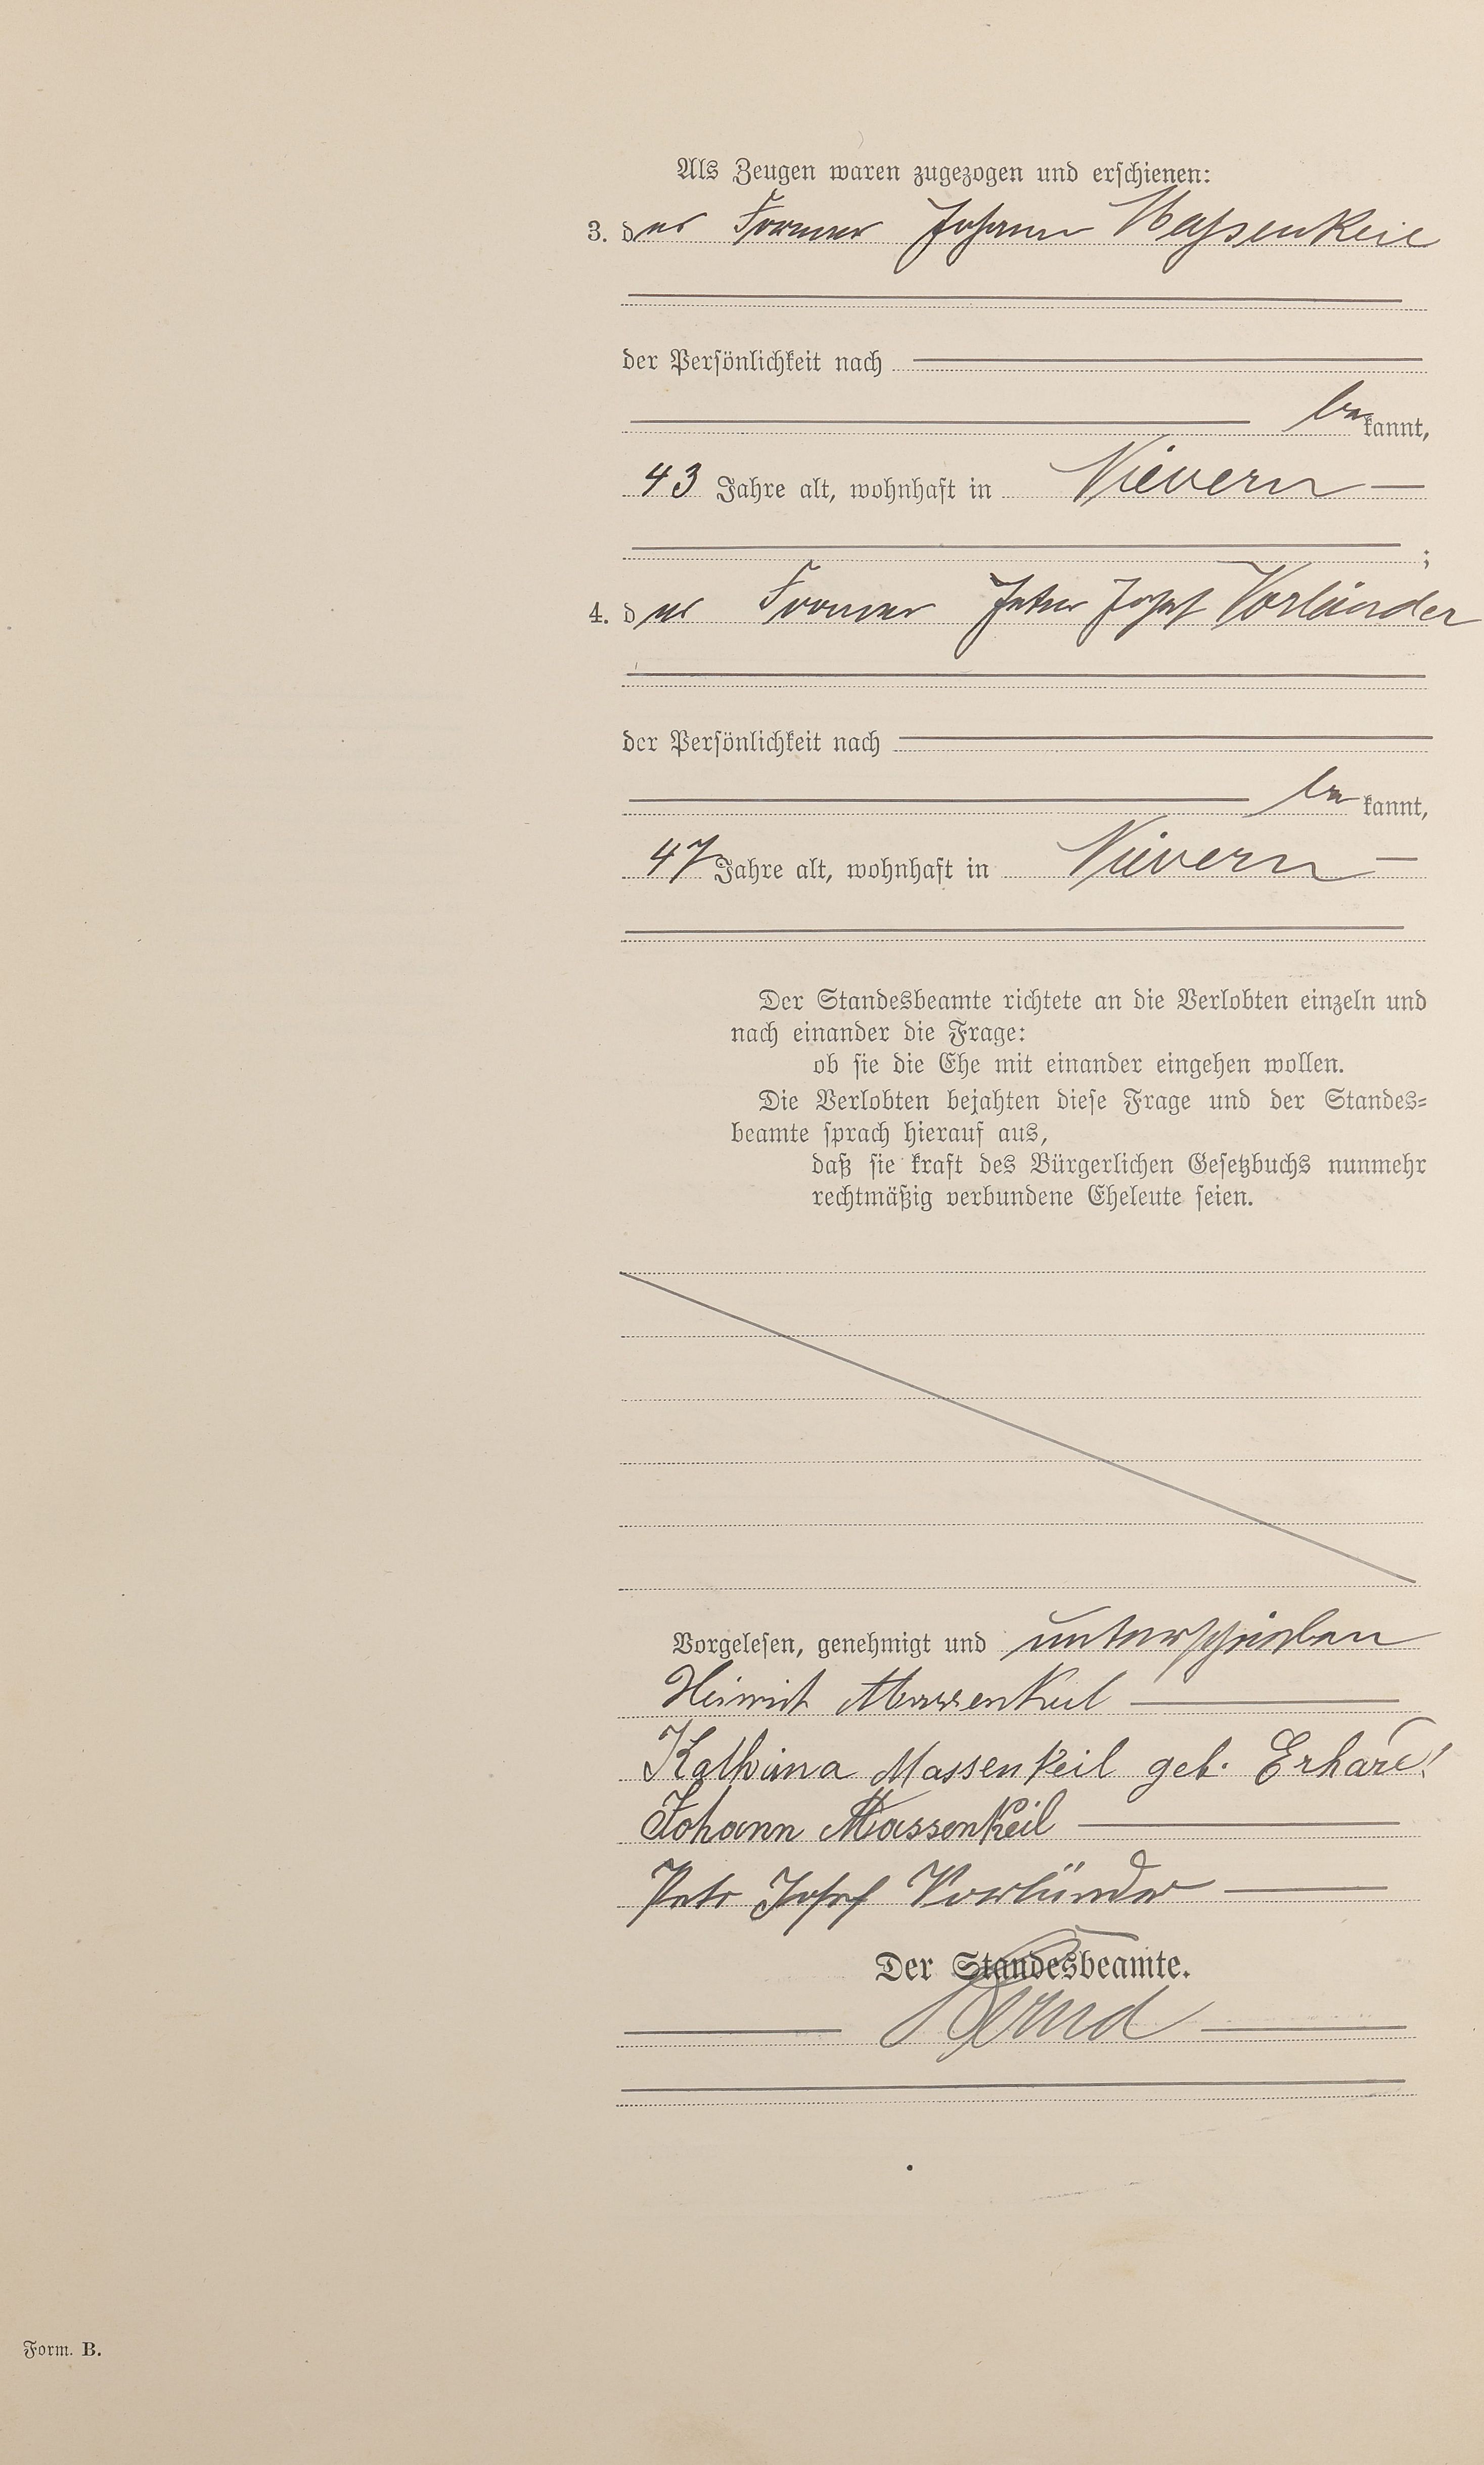 Als Zeugen waren zugezogen und erschienen:
3. der Former Johann Massenkeil
der Persönlichkeit nach
bekannt,
43 Jahre alt, wohnhaft in Nievern
;
4. der Former Peter Josef Vorländer
der Persönlichkeit nach
bekannt,
47 Jahre alt, wohnhaft in Nievern
Der Standesbeamte richtete an die Verlobten einzeln und
nach einander die Frage:
ob sie die Ehe mit einander eingehen wollen.
Die Verlobten bejahten diese Frage und der Standes-
beamte sprach hierauf aus,
daß sie kraft des Bürgerlichen Gesetzbuchs nunmehr
rechtmäßig verbundene Eheleute seien.
Vorgelesen, genehmigt und unterschrieben
Heinrich Massenkeil
Kathrina Massenkeil geb. Erhard
Johann Massenkeil
Peter Josef Vorländer
Der Standesbeamte.
Form. B.